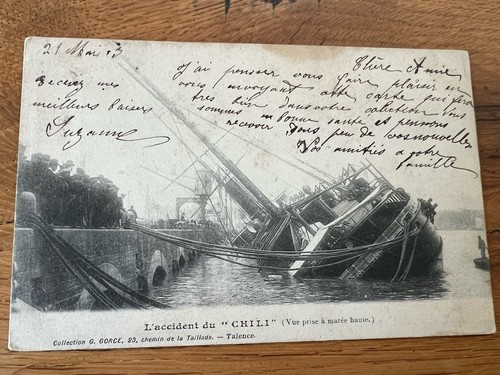 21 Mai 03
Chère Amie
J'ai penser vous faire plaisir en
vous envoyant cette carte qui fera
très bien dans votre collection nous
sommes en bonne santé et pensons
recevoir sous peu de vos nouvelles
Vos amitiés a votre
famille
Recevez mes
meilleurs baisers
Suzanne
L'accident du "CHILI" (Vue prise à marée haute.)
Collection G. GORCE, 23, chemin de la Taillade. — Talence.